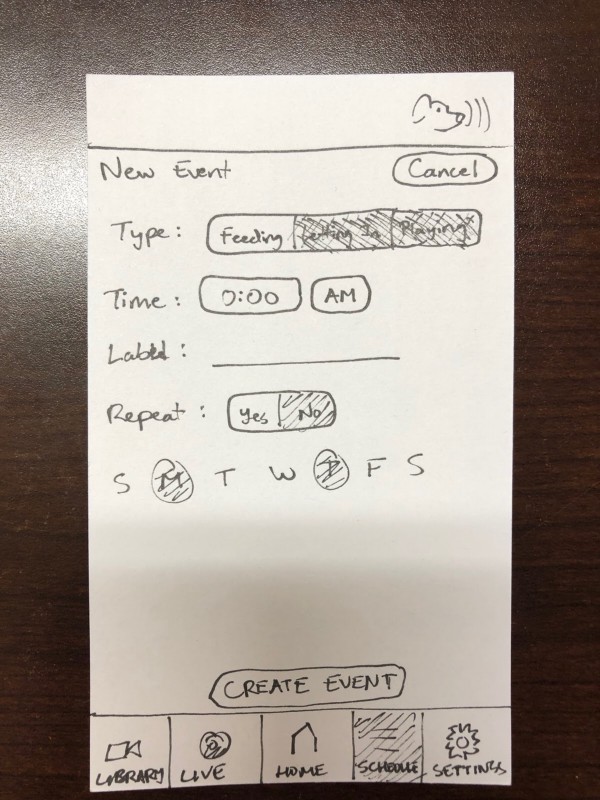 New Event Cancel
Type: Feeding Letting In Playing
Time: 0:00 AM
Label:
Repeat: Yes No
S M T W T F S
CREATE EVENT
LIBRARY LIVE HOME SCHEDULE SETTINGS